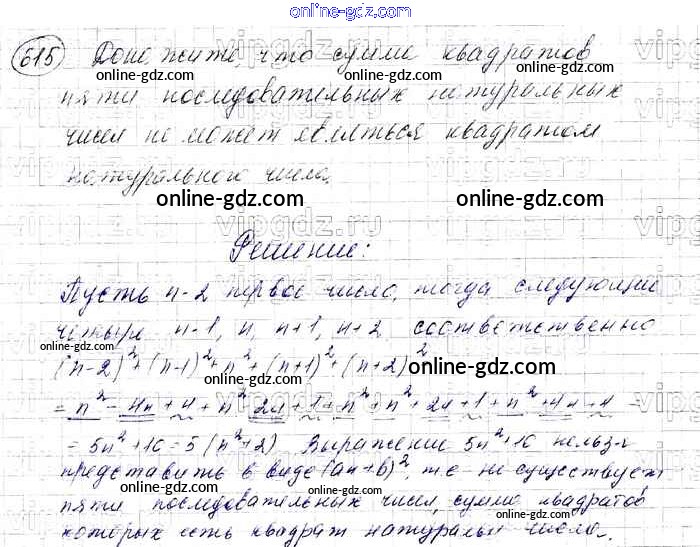 online-gdz.com
615 Докажите, что сумма квадратов
online-gdz.com online-gdz.com online-gdz.com
пяти последовательных натуральных
чисел не может являться квадратом
натурального числа.
online-gdz.com online-gdz.com
vipgdz.ru vipgdz.ru
Решение:
Пусть n-2 первое число, тогда следующие
четыре n-1, n, n+1, n+2 соответственно
online-gdz.com online-gdz.com
(n-2)²+(n-1)²+n²+(n+1)²+(n+2)²
online-gdz.com online-gdz.com
= n² - 4n + 4 + n² 2n + 1 + n² + n² + 2n + 1 + n² + 4n + 4 =
= 5n² + 10 = 5(n²+2) Выражение 5n²+10 нельзя
представить в виде (an+b)², т.е. не существует
пяти последовательных чисел, сумма квадратов
online-gdz.com online-gdz.com
которых есть квадрат натуральн числа.